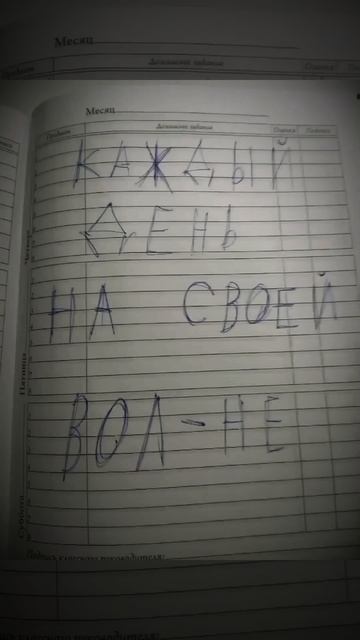 Месяц
Предмет Домашнее задание Оценка Подпись
Месяц
Предмет Домашнее задание Оценка Подпись
КАЖДЫЙ
ДЕНЬ
Четверг
НА СВОЕЙ
Пятница
ВОЛ-НЕ
Суббота
Подпись классного руководителя:
классного руководителя: